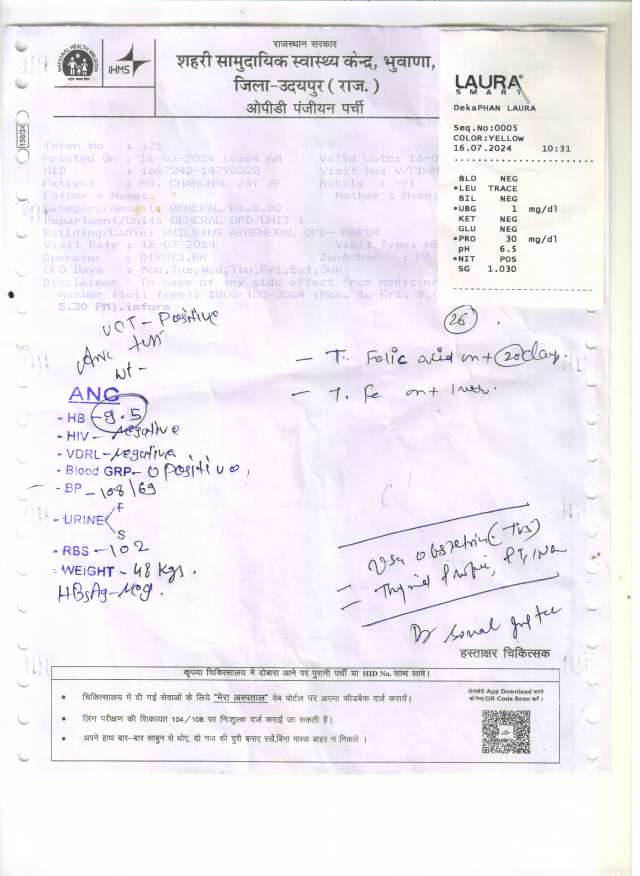 राजस्थान सरकार
शहरी सामुदायिक स्वास्थ्य केन्द्र, भुवाणा,
जिला-उदयपुर ( राज. )
ओपीडी पंजीयन पर्ची
NATIONAL HEALTH MISSION
IHMS
138/24
LAURA®
SMART
DekaPHAN LAURA
Seq.No:0005
COLOR:YELLOW
16.07.2024 10:31
BLD NEG
*LEU TRACE
BIL NEG
*UBG 1 mg/dl
KET NEG
GLU NEG
*PRO 30 mg/dl
pH 6.5
*NIT POS
SG 1.030
Token No : 121
Printed On : 16-07-2024 10:04 AM Valid Upto: 16-0
HID : 1607242-14798328 Visit No: V/CBWN
Patient : MS. CHANCHAL 24Y /F Mobile : +91
Father's Name: Mother's Name:
Category/Amount: GENERAL/Rs.0.00
Department/Unit: GENERAL OPD/UNIT 1
Building/Cabin: BUILDING A/GENERAL OPD- CABIN
Visit Date : 16-07-2024 Visit Type: NE
Operator : DIKU23.RR JanAdhar : NA
OPD Days : Mon,Tue,Wed,Thu,Fri,Sat,Sun
Disclaimer - In case of any side effect from medicine
number (toll free): 1800-180-3024 (Mon. to Fri. 9.0
5.30 PM).inform
UCT - Positive
26
Wt -
- T. Folic acid 20 day
- T. Fe
ANC
- HB - 9.5
- HIV - Negative
- VDRL - Negative
- Blood GRP- O Positive
- BP - 108/69
- URINE F
S
- RBS - 102
- WEIGHT - 48 Kgs.
HBsAg - Neg.
(TVS)
- Thyroid Profile, PT, INR
Dr Sonal Gupta
हस्ताक्षर चिकित्सक
कृपया चिकित्सालय में दोबारा आने पर पुरानी पर्ची या HID No. साथ लावे।
• चिकित्सालय में दी गई सेवाओं के लिये "मेरा अस्पताल" वेब पोर्टल पर अपना फीडबैक दर्ज करायें।
• लिंग परीक्षण की शिकायत 104/108 पर निःशुल्क दर्ज कराई जा सकती है।
• अपने हाथ बार-बार साबुन से धोए, दो गज की दुरी बनाए रखें,बिना मास्क बाहर न निकले ।
IHMS App Download करने
के लिए QR Code Scan करें।